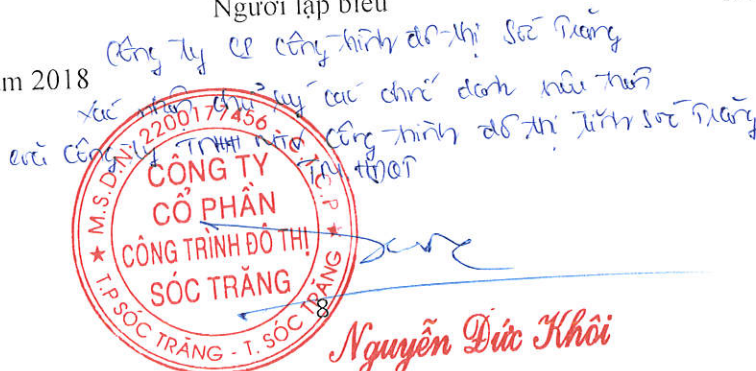 Người lập biểu
Công ty CP Công trình đô thị Sóc Trăng
ăm 2018
xác nhận chữ ký các chức danh nêu trên
của Công ty TNHH MTV Công trình đô thị tỉnh Sóc Trăng
TM HĐQT
M.S.D.N: 2200177456 - C.T.C.P
CÔNG TY
CỔ PHẦN
CÔNG TRÌNH ĐÔ THỊ
SÓC TRĂNG
T.P SÓC TRĂNG - T. SÓC TRĂNG
8
Nguyễn Đức Khôi